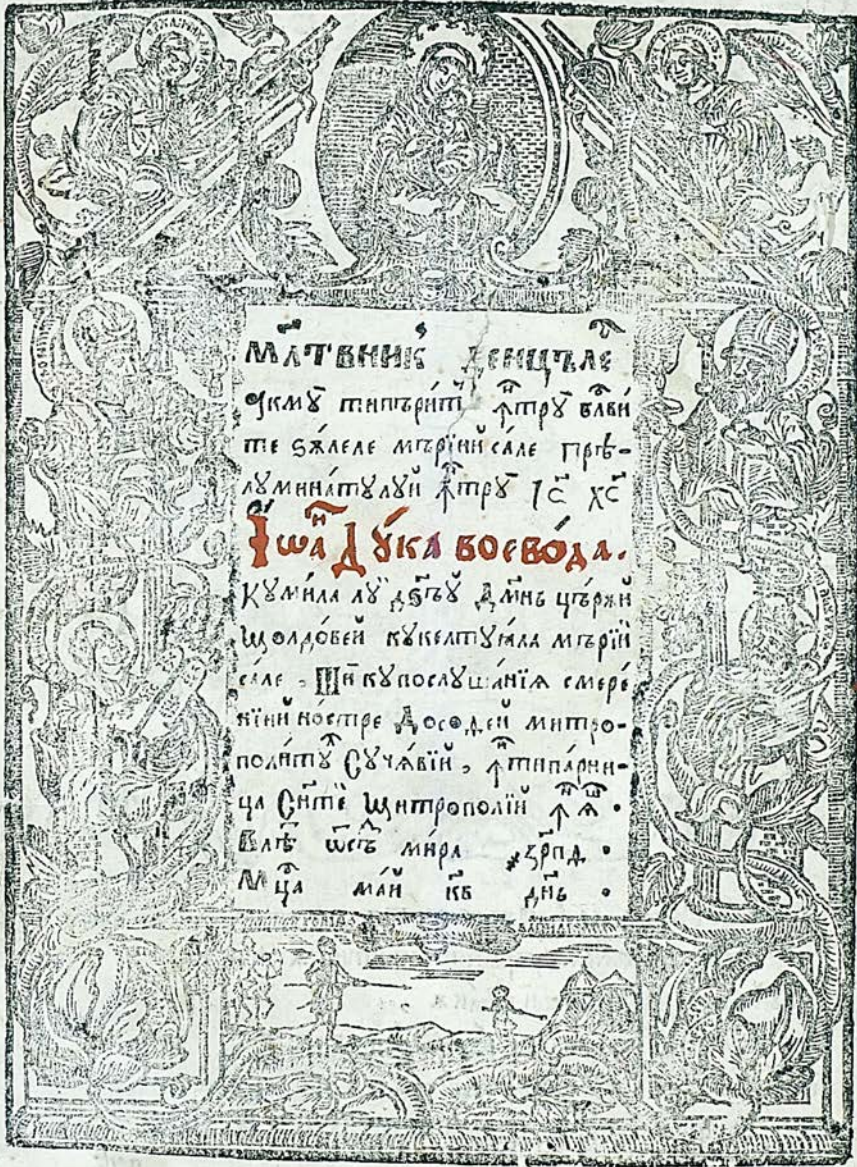 Мл҃твникꙋ дениц̾ѣле
ꙋкмꙋ типърит ꙟтрꙋ бл҃ви
те ꙃѫлеле мърїїй сале прѣ-
луминатулуй ꙟтрꙋ І҃с Х҃с
Іѡа҃н Дꙋка воевода.
Кꙋ мила лꙋ дꙋ҃мнꙁъꙋ църѫй
Молдовей кꙋ келтꙋꙗла мърїй
сале , Ши кꙋ послꙋшанїѧ смере
нїїй ностре Досодей митро-
политꙋ Сꙋчѧвїй , ꙟ типарни-
ца С҃нтеї Митрополїй ꙟ Ꙗ҃ш .
Влѣт ѿсъзд мира ҂зрпд .
М҃ца май кв дн҃ь .